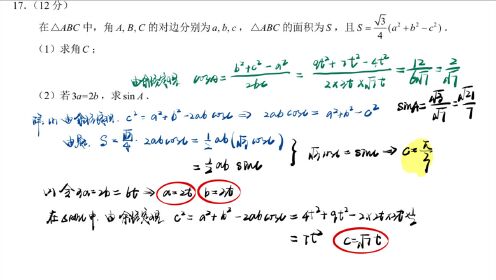 17.（12 分）
在△ABC 中，角 A, B, C 的对边分别为 a, b, c，△ABC 的面积为 S，且 S = √3/4 (a² + b² − c²)．
（1）求角 C；
由余弦定理 cosA = (b²+c²−a²)/(2bc) = (9t²+7t²−4t²)/(2×3t×√7t) = 12/(6√7) = 2/√7
（2）若 3a=2b，求 sin A．
sinA = √3/√7 = √21/7
由余弦定理 c² = a²+b²−2ab cosC ⇒ 2ab cosC = a²+b²−c²
S = √3/4 · 2ab cosC = 1/2 ab(√3 cosC)
= 1/2 ab sinC } √3 cosC = sinC ⇒ C = π/3
(2) 令 3a=2b=6t ⇒ a=2t b=3t
在△ABC中 由余弦定理 c² = a²+b²−2ab cosC = 4t²+9t²−2×2t×3t×1/2
= 7t² c=√7t